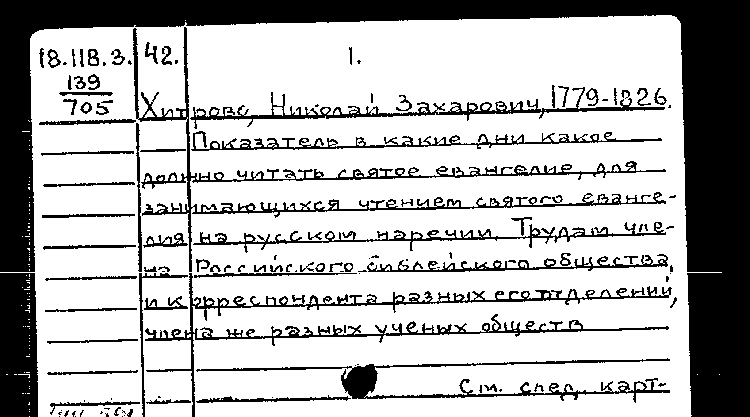 18.118.3. 42. 1.
139
705
Хитрово, Николай Захарович, 1779-1826.
Показатель в какие дни какое
должно читать святое евангелие, для
занимающихся чтением святого еванге-
лия на русском наречии. Трудам чле-
на Российского библейского общества,
и корреспондента разных его отделений,
члена же разных ученых обществ
См. след. карт-